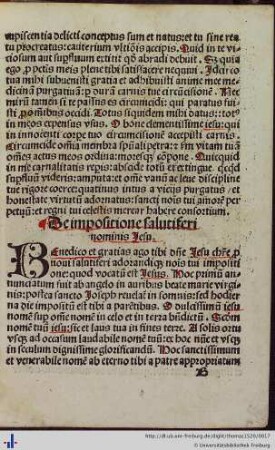 cupiscentia delicti conceptus sum et natus: et tu sine reatu
procreatus: cauterium vltiõis accipis. Quid in te vi-
ciosum aut supfluum erat: qd abradi debuit. Sz quia
ego p petis meis plene tibi satisfacere nequiui. Idcirco
tua mihi subuenisti gratia et adhibuisti anime mee me-
dicinã purgatiuã: p durã carnis tue circũcisionẽ. Nec
mirũ tamen si te passus es circumcidi: qui paratus fui-
sti p oĩbus occidi. Totus siquidem mihi datus: totus
in meos expensus vsus. O bone clementissime iesu: qui
in innocenti corpe tuo circumcisionẽ accepisti carnis.
Circumcide oĩnia membra spũali petra: et sm vitam tuã
oẽs actus meos ordina: moresqz cõpone. Quicquid
in me carnalitatis regis: abscide totũ et extingue
supfluum videris: amputa: et omẽ vanũ ac lene discipli-
ne tue rigore coerce: quatinus intus a viciis purgatus et
honestate virtutũ adornatus: sancti nois tui amorẽ per-
petuũ: et regni tui celestis merear habere consortium.
De impositione salutiferi
nominis Jesu.
Benedico et gratias ago tibi dñe Jesu chẽ p
noui salutiferi adorandiqz nois tui impositi-
one: quod vocatũ est Jesus. Hoc primũ an-
nunciatum fuit ab angelo in auribus beate marie vir-
ginis: postea sancto Joseph reuelat in somnis: sed hodier-
na die impositũ est tibi a parẽtibus. O dulcissimũ iesu
nomen sup omẽ nomẽ in celo et in terra bñdictũ. Scdm
nomẽ tuũ iesu: sic et laus tua in fines terre. A solis ortu
vsqz ad occasum laudabile nomẽ tuũ: ex hoc nũc et vsqz
in seculum dignissime glorificandũ. Hoc sanctissimum
et venerabile nomẽ ab eterno tibi a patre appropriatum
B
http://dl.ub.uni-freiburg.de/diglit/thomas1520/0017
Universitätsbibliothek Freiburg